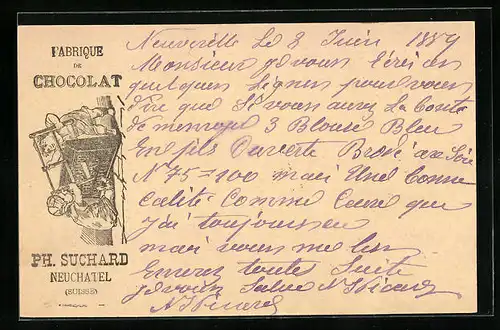 FABRIQUE
DE
CHOCOLAT
PH. SUCHARD
NEUCHATEL
(SUISSE)
Neuveville Le 8 Juin 1889
Monsieur je vous écri ces
quelques Lignes pour vous
dire que Si vous aurez La bonté
de menvoyé 3 Blouse Bleu
En fils Ouverte Brodé
N° 75 = 100 mai Une bonne
calité Comme Ceux que
j'ai toujours eu
mai vous me les
Enverez toutes Suite
je vous Salue